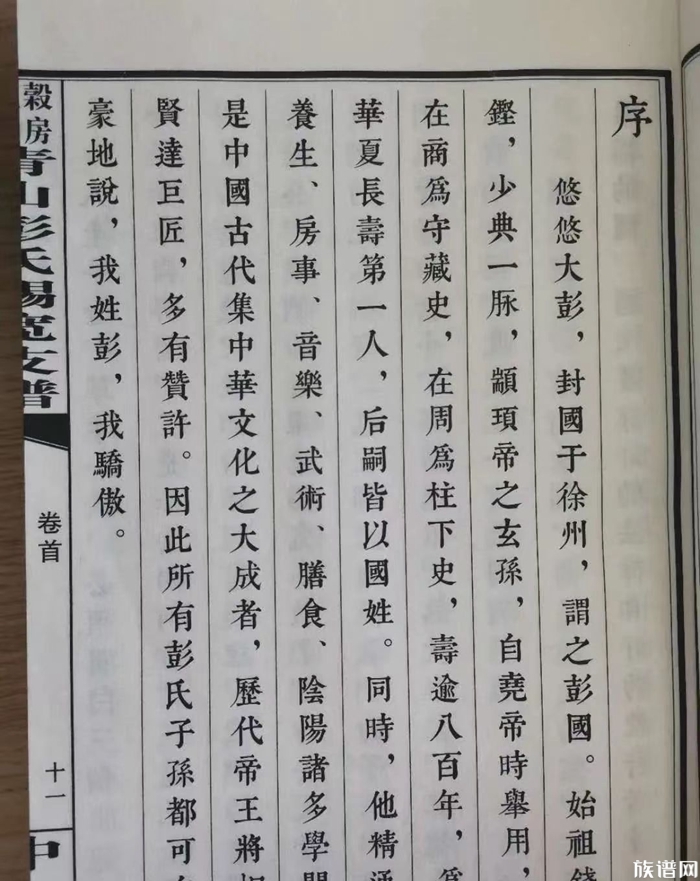 序
悠悠大彭，封國于徐州，謂之彭國。始祖籛
鏗，少典一脉，顓頊帝之玄孫，自堯帝時舉用，
在商爲守藏史，在周爲柱下史，壽逾八百年，爲
華夏長壽第一人，后嗣皆以國姓。同時，他精通
養生、房事、音樂、武術、膳食、陰陽諸多學問
是中國古代集中華文化之大成者，歷代帝王將相
賢達巨匠，多有贊許。因此所有彭氏子孫都可自
豪地說，我姓彭，我驕傲。
穀房青山彭氏錫寛支譜
卷首
十一
族谱网